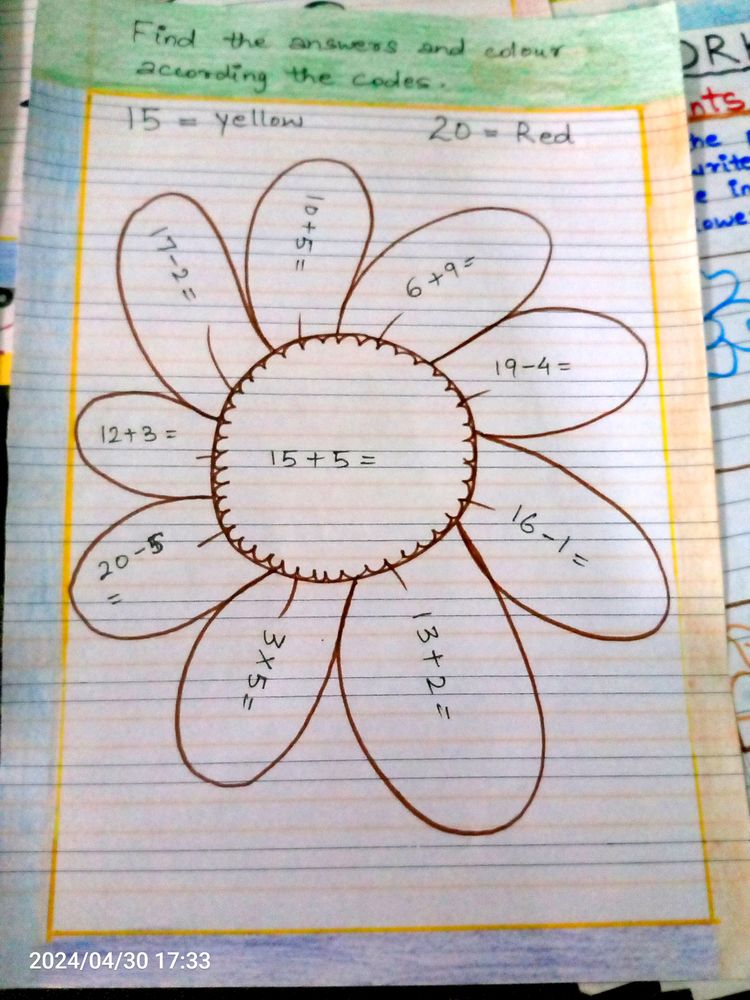 Find the answers and colour
according the codes.
15 = yellow 20 = Red
10+5=
17-2=
6+9=
19-4=
12+3=
15+5=
16-1=
20-5
=
3x5=
13+2=
DRK
nts
he
write
e in
owe
2024/04/30 17:33